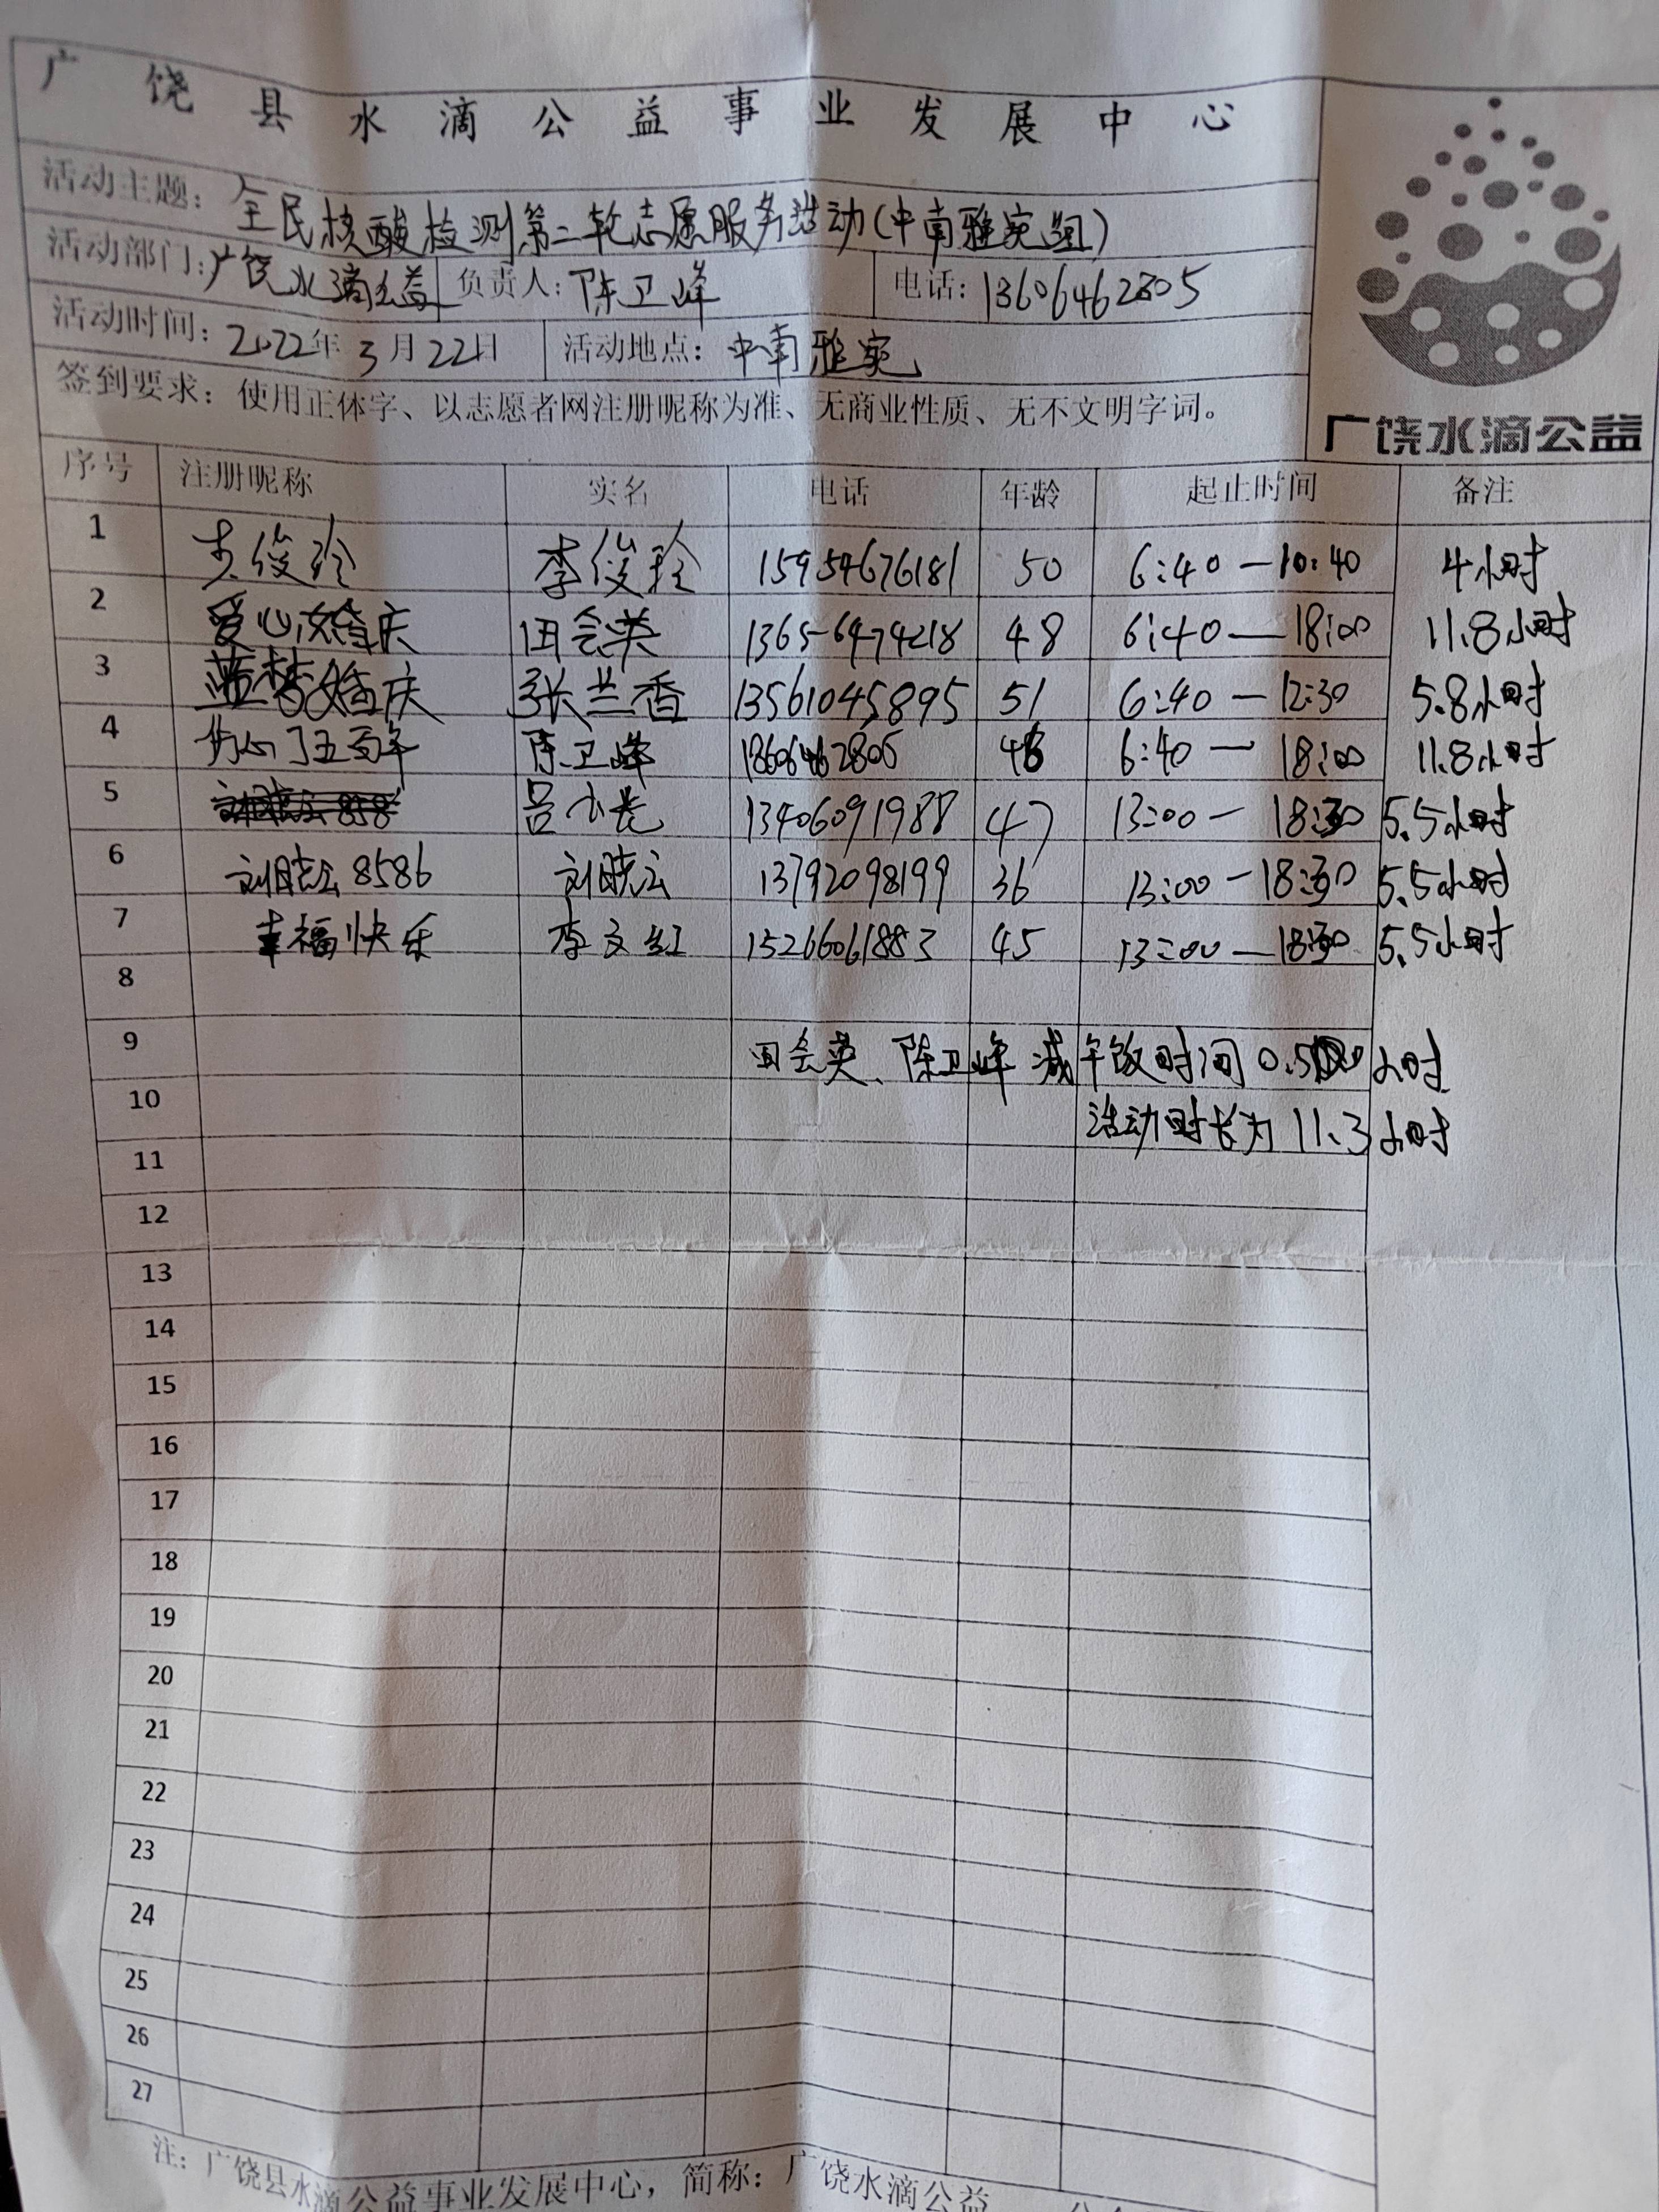 广饶县水滴公益事业发展中心
活动主题：全民核酸检测第二轮志愿服务活动(中南雅苑组)
活动部门：广饶水滴公益 负责人：陈卫峰 电话：13606462805
活动时间：2022年3月22日 活动地点：中南雅苑
签到要求：使用正体字、以志愿者网注册昵称为准、无商业性质、无不文明字词。
广饶水滴公益
序号 注册昵称 实名 电话 年龄 起止时间 备注
1 李俊玲 李俊玲 15954676181 50 6:40—10:40 4小时
2 爱心婚庆 田会英 13656474218 48 6:40—18:00 11.8小时
3 蓝梦婚庆 张兰香 13561045895 51 6:40—12:30 5.8小时
4 伤心了五百年 陈卫峰 13606462805 48 6:40—18:00 11.8小时
5 吕小长 13406091988 47 13:00—18:30 5.5小时
6 刘晓云8586 刘晓云 13792098199 36 13:00—18:30 5.5小时
7 幸福快乐 李文红 15266061883 45 13:00—18:30 5.5小时
8
9 田会英、陈卫峰减午饭时间0.5小时
10 活动时长为11.3小时
11
12
13
14
15
16
17
18
19
20
21
22
23
24
25
26
27
注：广饶县水滴公益事业发展中心，简称：广饶水滴公益